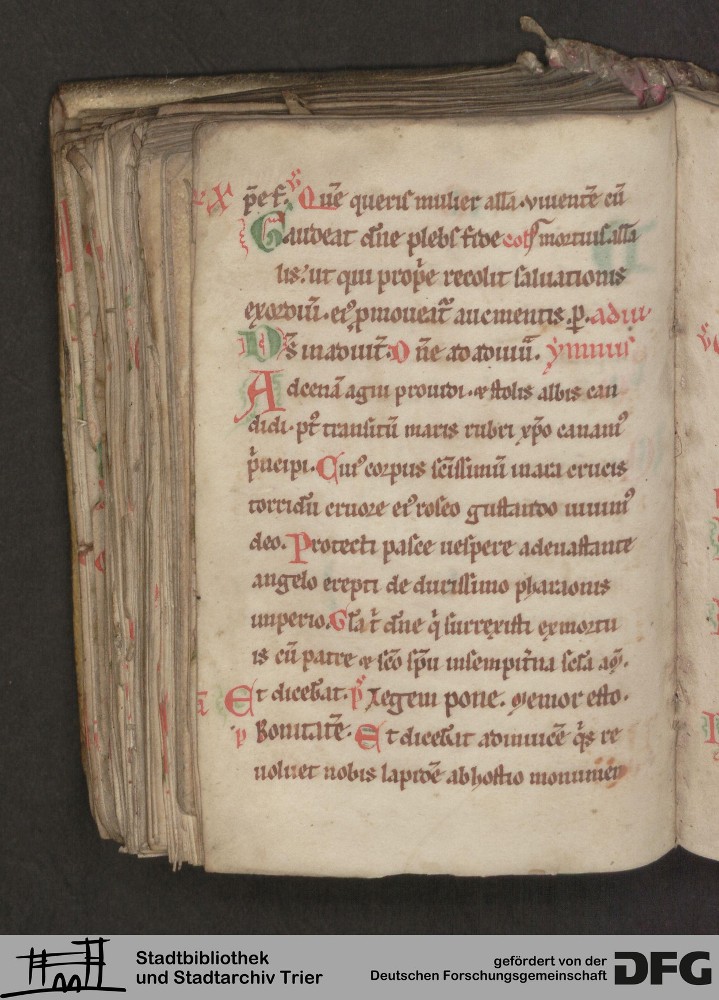 p̄e f. V̄ Quē queris mulier alla. viuentē cū
Gaudeat dn̄e plebs fidelis mortuis alla
lis: ut qui prop̄e recolit saluationis
exordiū. eiꝰ promoueat᷑ augmentis. p̱. adiu
Ds̄ in adiut̄. Dn̄e ad adiuū. ymnus
Ad cenā agni prouidi. & stolis albis can
didi. pt᷑ transitū maris rubri xp̄o canamꝰ
p̓ncipi. Cuiꝰ corpus scīssimū in ara crucis
torridū cruore eiꝰ roseo gustando uiuimꝰ
deo. Protecti pasce uespere a deuastante
angelo erepti de durissimo pharaonis
imperio. Gl̄a t̓ dn̄e q̓ surrexisti ex mortu
is cū patre & sc̄o sp̄u in sempit̓na sc̄la am̄.
Et dicebat. p̄s Legem pone. Memor esto.
p̄ Bonitatē. Et dicebāt adinuicē q̓s re
uoluet nobis lapidē ab hostio monumen
Stadtbibliothek
und Stadtarchiv Trier
gefördert von der
Deutschen Forschungsgemeinschaft DFG